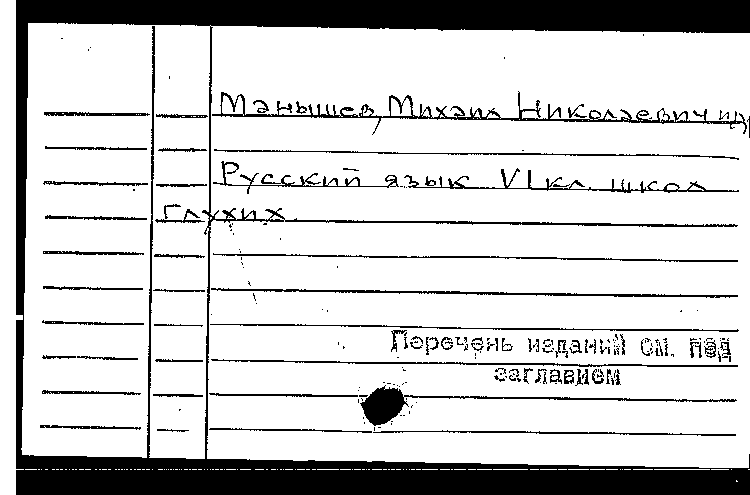 Манышев, Михаил Николаевич
Русский язык VI кл. школ
глухих.
Перечень изданий см. под
заглавием